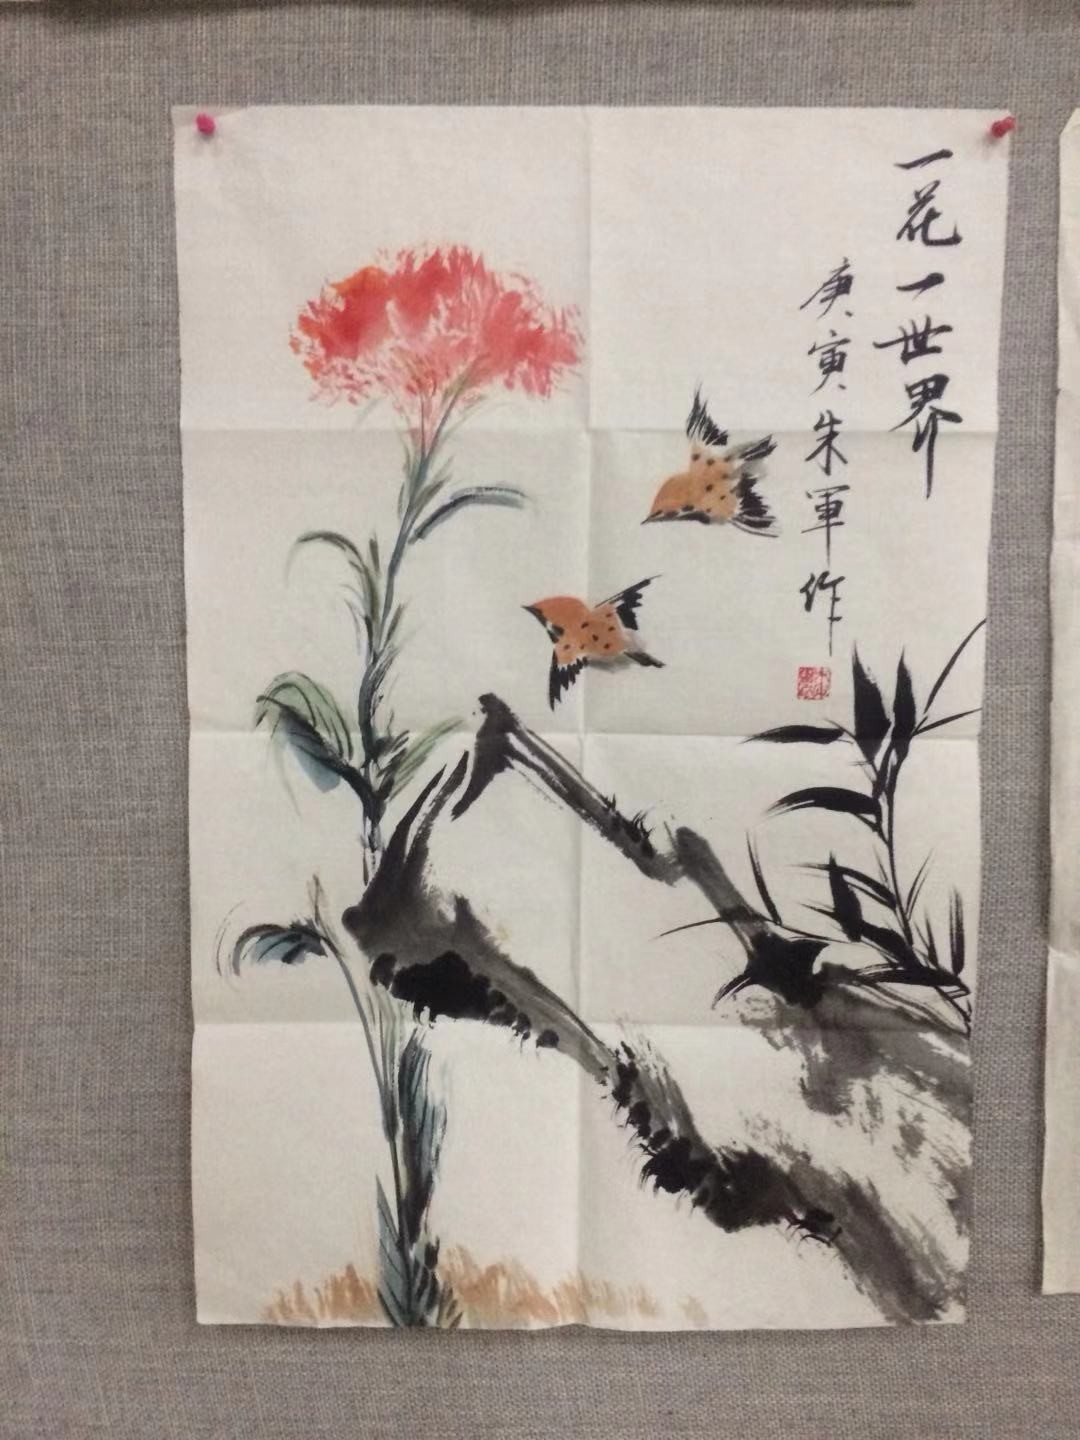 一花一世界
庚寅朱軍作